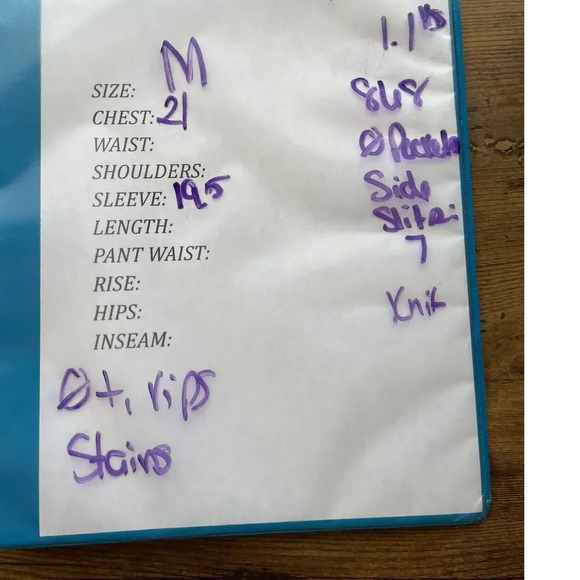 M
1.1 lbs
SIZE:
868
CHEST: 21
WAIST:
Ø Pockets
SHOULDERS:
SLEEVE: 19.5
Side
LENGTH:
Slits:
PANT WAIST:
7
RISE:
HIPS:
Knit
INSEAM:
Ø t, rips
Stains